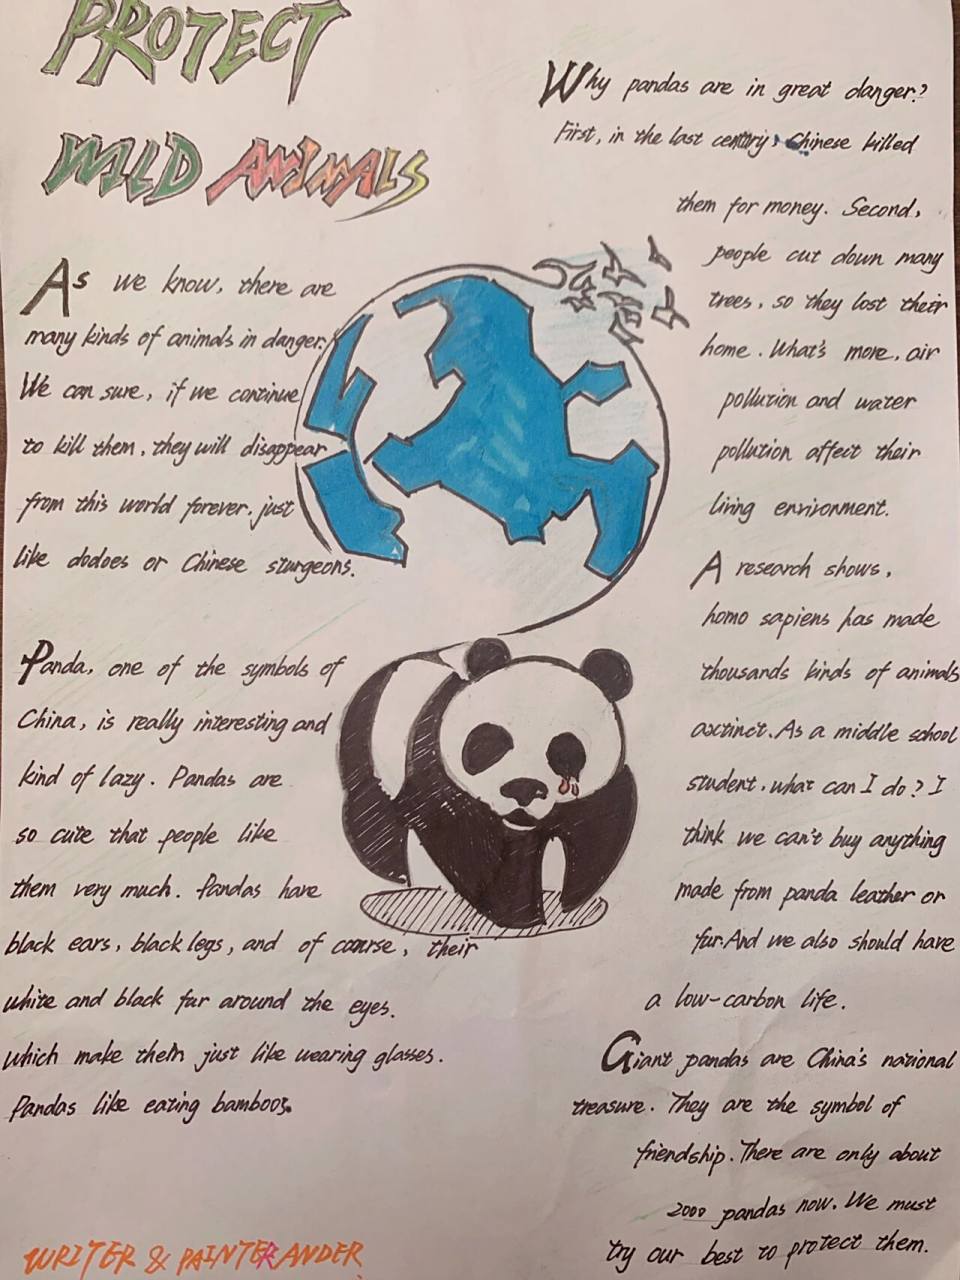 PROTECT
WILD ANIMALS
As we know, there are
many kinds of animals in danger.
We can sure, if we continue
to kill them, they will disappear
from this world forever, just
like dodoes or Chinese sturgeons.
Panda, one of the symbols of
China, is really interesting and
kind of lazy. Pandas are
so cute that people like
them very much. Pandas have
black ears, black legs, and of course, their
white and black fur around the eyes.
which make them just like wearing glasses.
Pandas like eating bamboos.
WRITER & PAINTER ANDER
Why pandas are in great danger?
First, in the last century, Chinese killed
them for money. Second,
people cut down many
trees, so they lost their
home. What's more, air
pollution and water
pollution affect their
living environment.
A research shows,
homo sapiens has made
thousands kinds of animals
axtinct. As a middle school
student, what can I do? I
think we can't buy anything
made from panda leather or
fur. And we also should have
a low-carbon life.
Giant pandas are China's national
treasure. They are the symbol of
friendship. There are only about
2000 pandas now. We must
try our best to protect them.